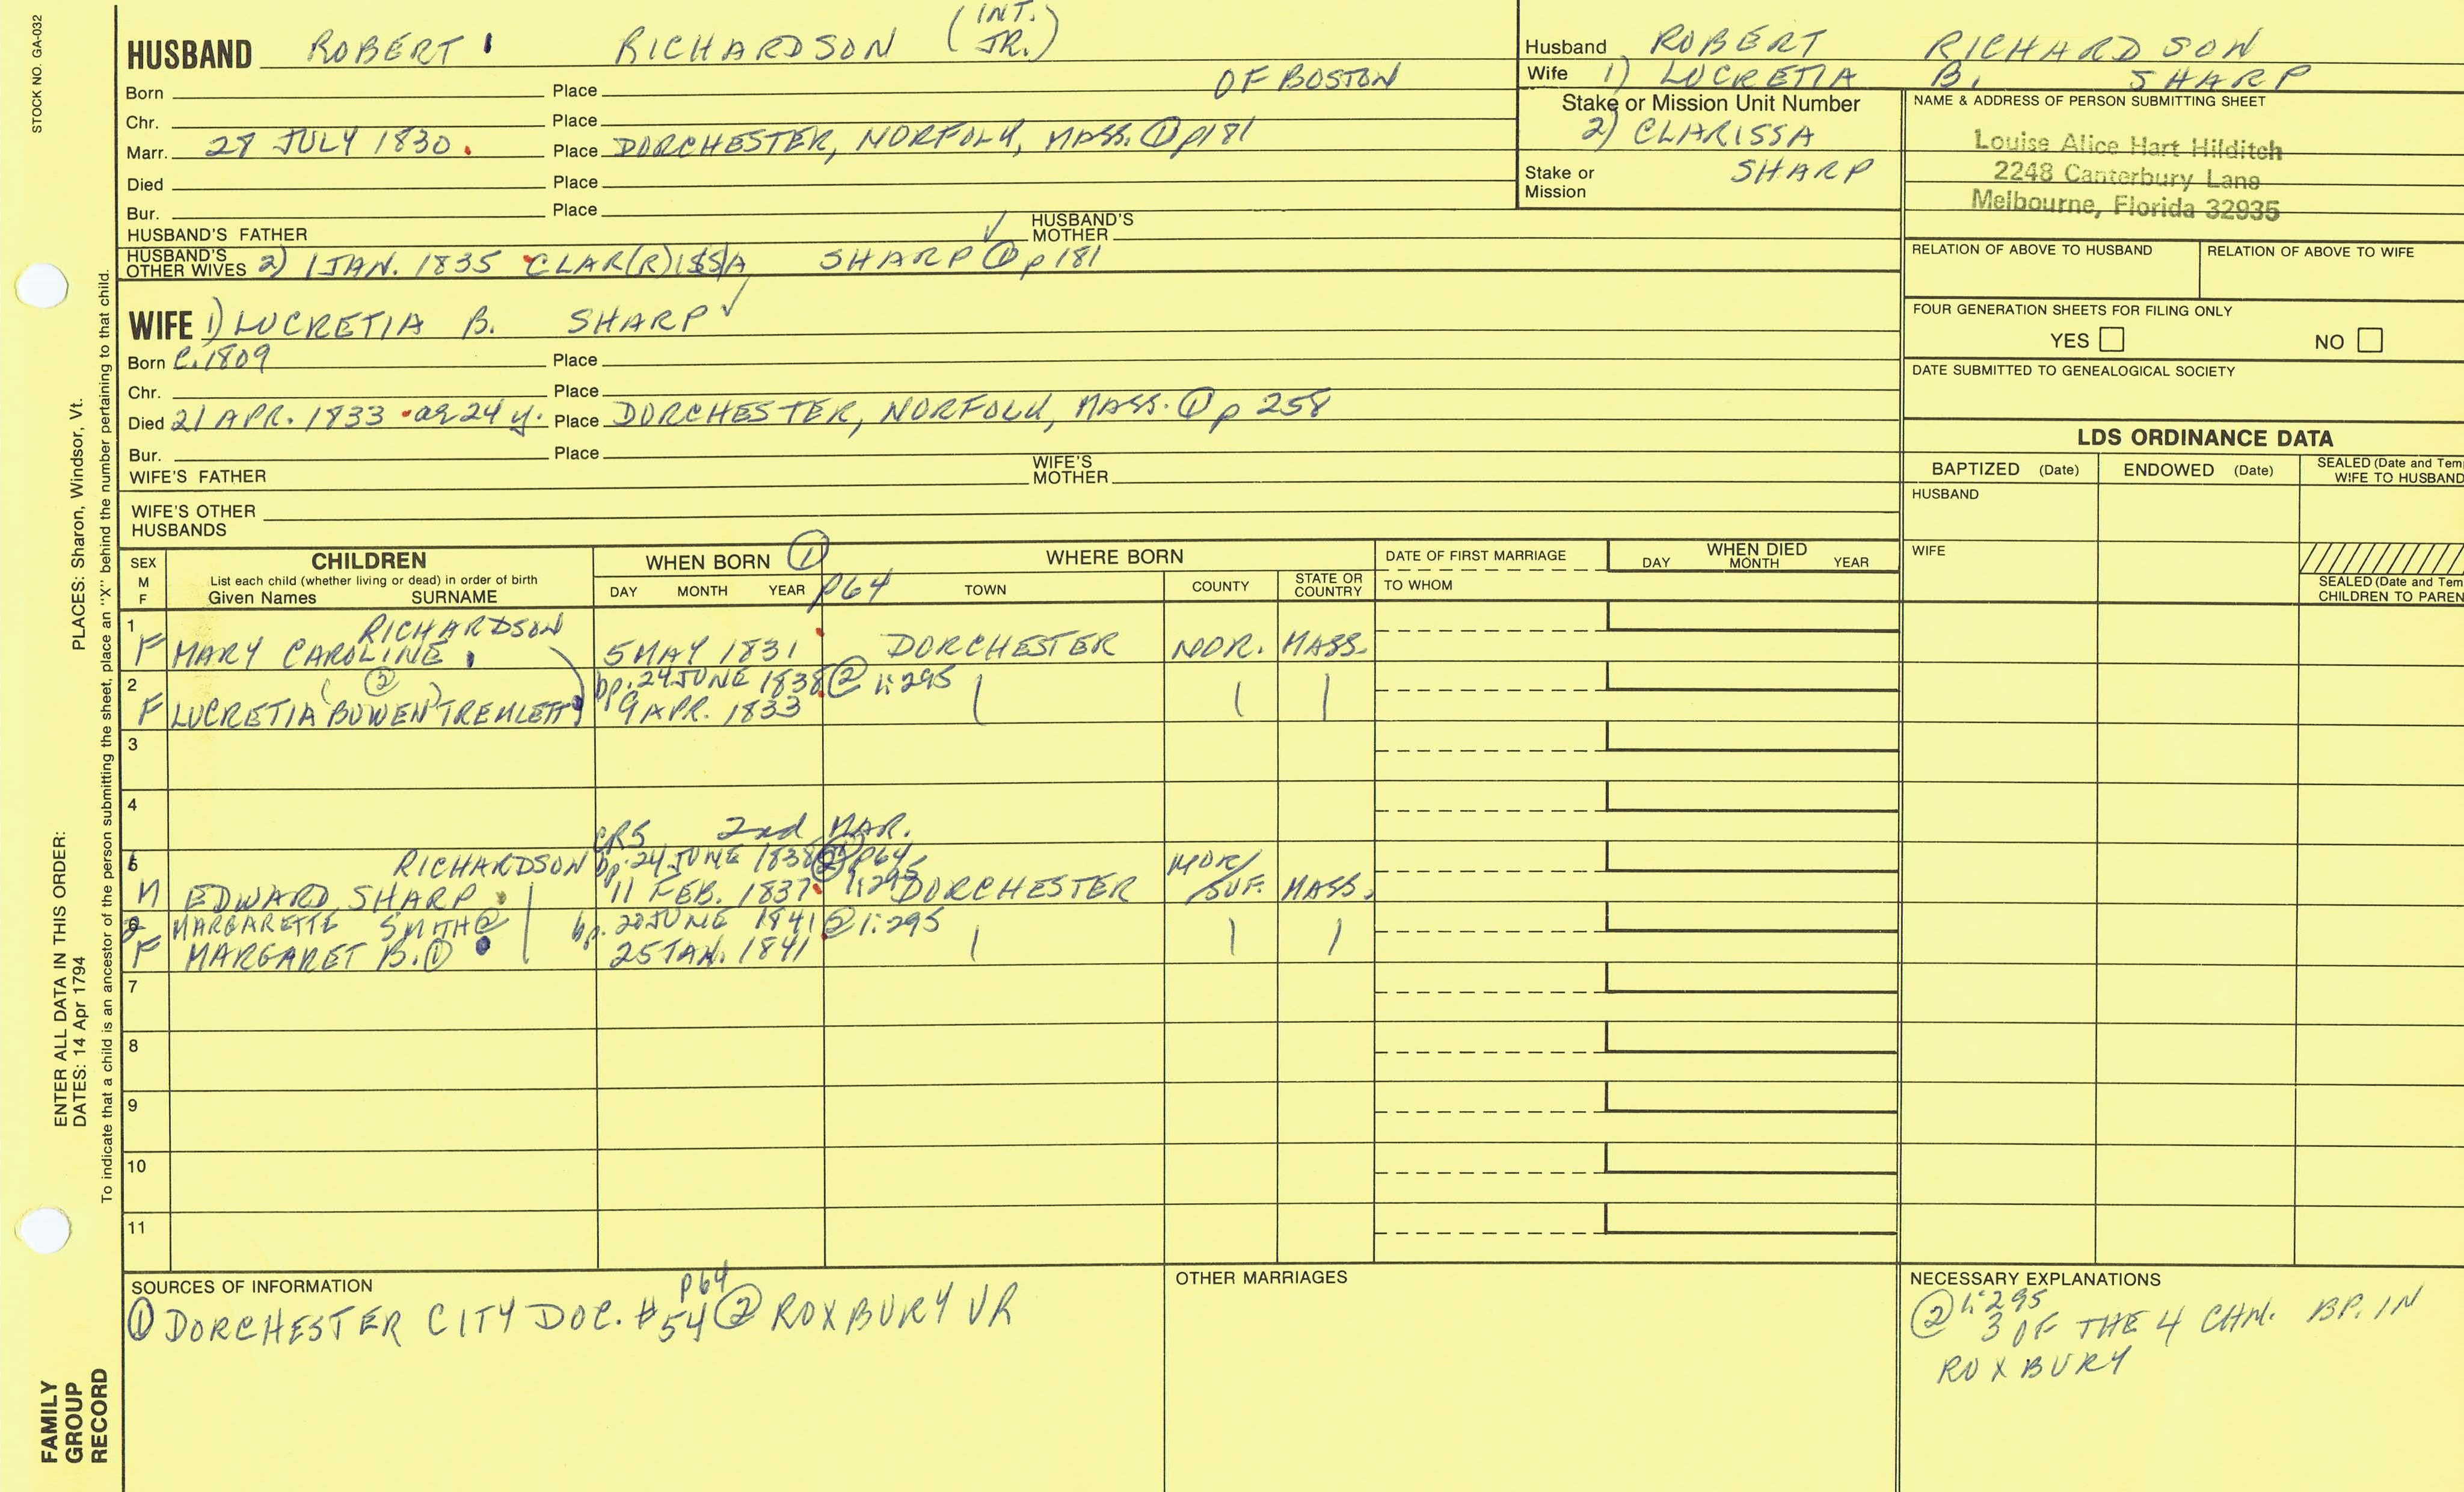 STOCK NO. GA-032
HUSBAND ROBERT RICHARDSON (INT. JR.)
Born Place OF BOSTON
Chr. Place
Marr. 28 JULY 1830. Place DORCHESTER, NORFOLK, MASS. ① p181
Died Place
Bur. Place
HUSBAND'S FATHER HUSBAND'S MOTHER
HUSBAND'S OTHER WIVES 2) 1 JAN. 1835 CLAR(R)ISSA SHARP ① p 181
WIFE 1) LUCRETIA B. SHARP ✓
Born C. 1809 Place
Chr. Place
Died 21 APR. 1833 ae 24 y. Place DORCHESTER, NORFOLK, MASS. ① p 258
Bur. Place
WIFE'S FATHER WIFE'S MOTHER
WIFE'S OTHER HUSBANDS
Husband ROBERT RICHARDSON
Wife 1) LUCRETIA B. SHARP
Stake or Mission Unit Number
2) CLARISSA
Stake or Mission SHARP
NAME & ADDRESS OF PERSON SUBMITTING SHEET
Louise Alice Hart Hilditch
2248 Canterbury Lane
Melbourne, Florida 32935
RELATION OF ABOVE TO HUSBAND RELATION OF ABOVE TO WIFE
FOUR GENERATION SHEETS FOR FILING ONLY
YES NO
DATE SUBMITTED TO GENEALOGICAL SOCIETY
LDS ORDINANCE DATA
BAPTIZED (Date) ENDOWED (Date) SEALED (Date and Tem
WIFE TO HUSBAND
HUSBAND
WIFE
SEALED (Date and Tem
CHILDREN TO PAREN
SEX M F CHILDREN WHEN BORN ① WHERE BORN DATE OF FIRST MARRIAGE WHEN DIED
List each child (whether living or dead) in order of birth
Given Names SURNAME DAY MONTH YEAR p64 TOWN COUNTY STATE OR COUNTRY TO WHOM DAY MONTH YEAR
1 RICHARDSON
F MARY CAROLINE 5 MAY 1831 DORCHESTER NOR. MASS.
2 ② bp. 24 JUNE 1838 ② 1:295
F LUCRETIA (BOWEN) TREMLETT 9 APR. 1833
3
4
CR5 2nd MAR.
5 RICHARDSON bp. 24 JUNE 1838 ② p64 1:295 NOR/
M EDWARD SHARP 11 FEB. 1837 DORCHESTER SUF. MASS.
6 MARGARETTE SMITH ② bp. 20 JUNE 1841 ② 1:295
F MARGARET B. ① 25 JAN. 1841
7
8
9
10
11
SOURCES OF INFORMATION
p64
① DORCHESTER CITY DOC. #54 ② ROXBURY VR
OTHER MARRIAGES
NECESSARY EXPLANATIONS
② 1:295
3 OF THE 4 CHN. BP. IN
ROXBURY
PLACES: Sharon, Windsor, Vt.
ENTER ALL DATA IN THIS ORDER:
DATES: 14 Apr 1794
To indicate that a child is an ancestor of the person submitting the sheet, place an "X" behind the number pertaining to that child.
FAMILY
GROUP
RECORD